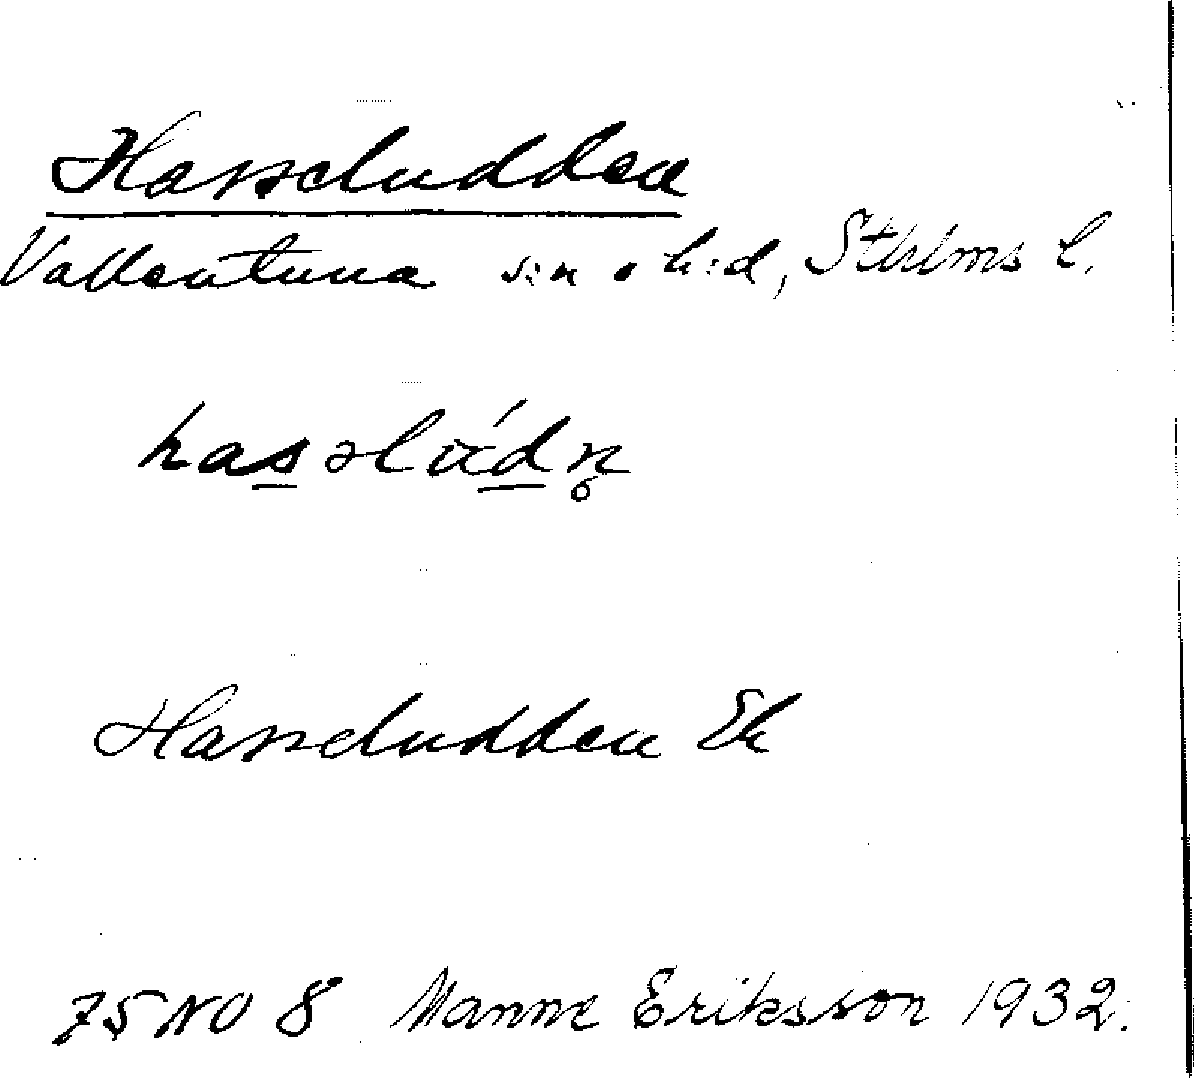 Hasseludden
Vallentuna s:n o h:d, Sthlms l.
hasəlúdn̥
Hasseludden Ek
75 NO 8 Manne Eriksson 1932.